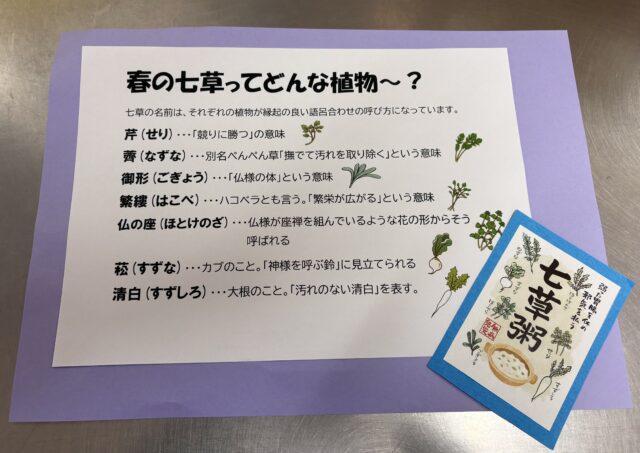 春の七草ってどんな植物～？
七草の名前は、それぞれの植物が縁起の良い語呂合わせの呼び方になっています。
芹(せり)･･･「競りに勝つ」の意味
薺(なずな)･･･別名ぺんぺん草「撫でて汚れを取り除く」という意味
御形(ごぎょう)･･･「仏様の体」という意味
繁縷(はこべ)･･･ハコベラとも言う。「繁栄が広がる」という意味
仏の座(ほとけのざ)･･･仏様が座禅を組んでいるような花の形からそう
呼ばれる
菘(すずな)･･･カブのこと。「神様を呼ぶ鈴」に見立てられる
清白(すずしろ)･･･大根のこと。「汚れのない清白」を表す。
七草粥